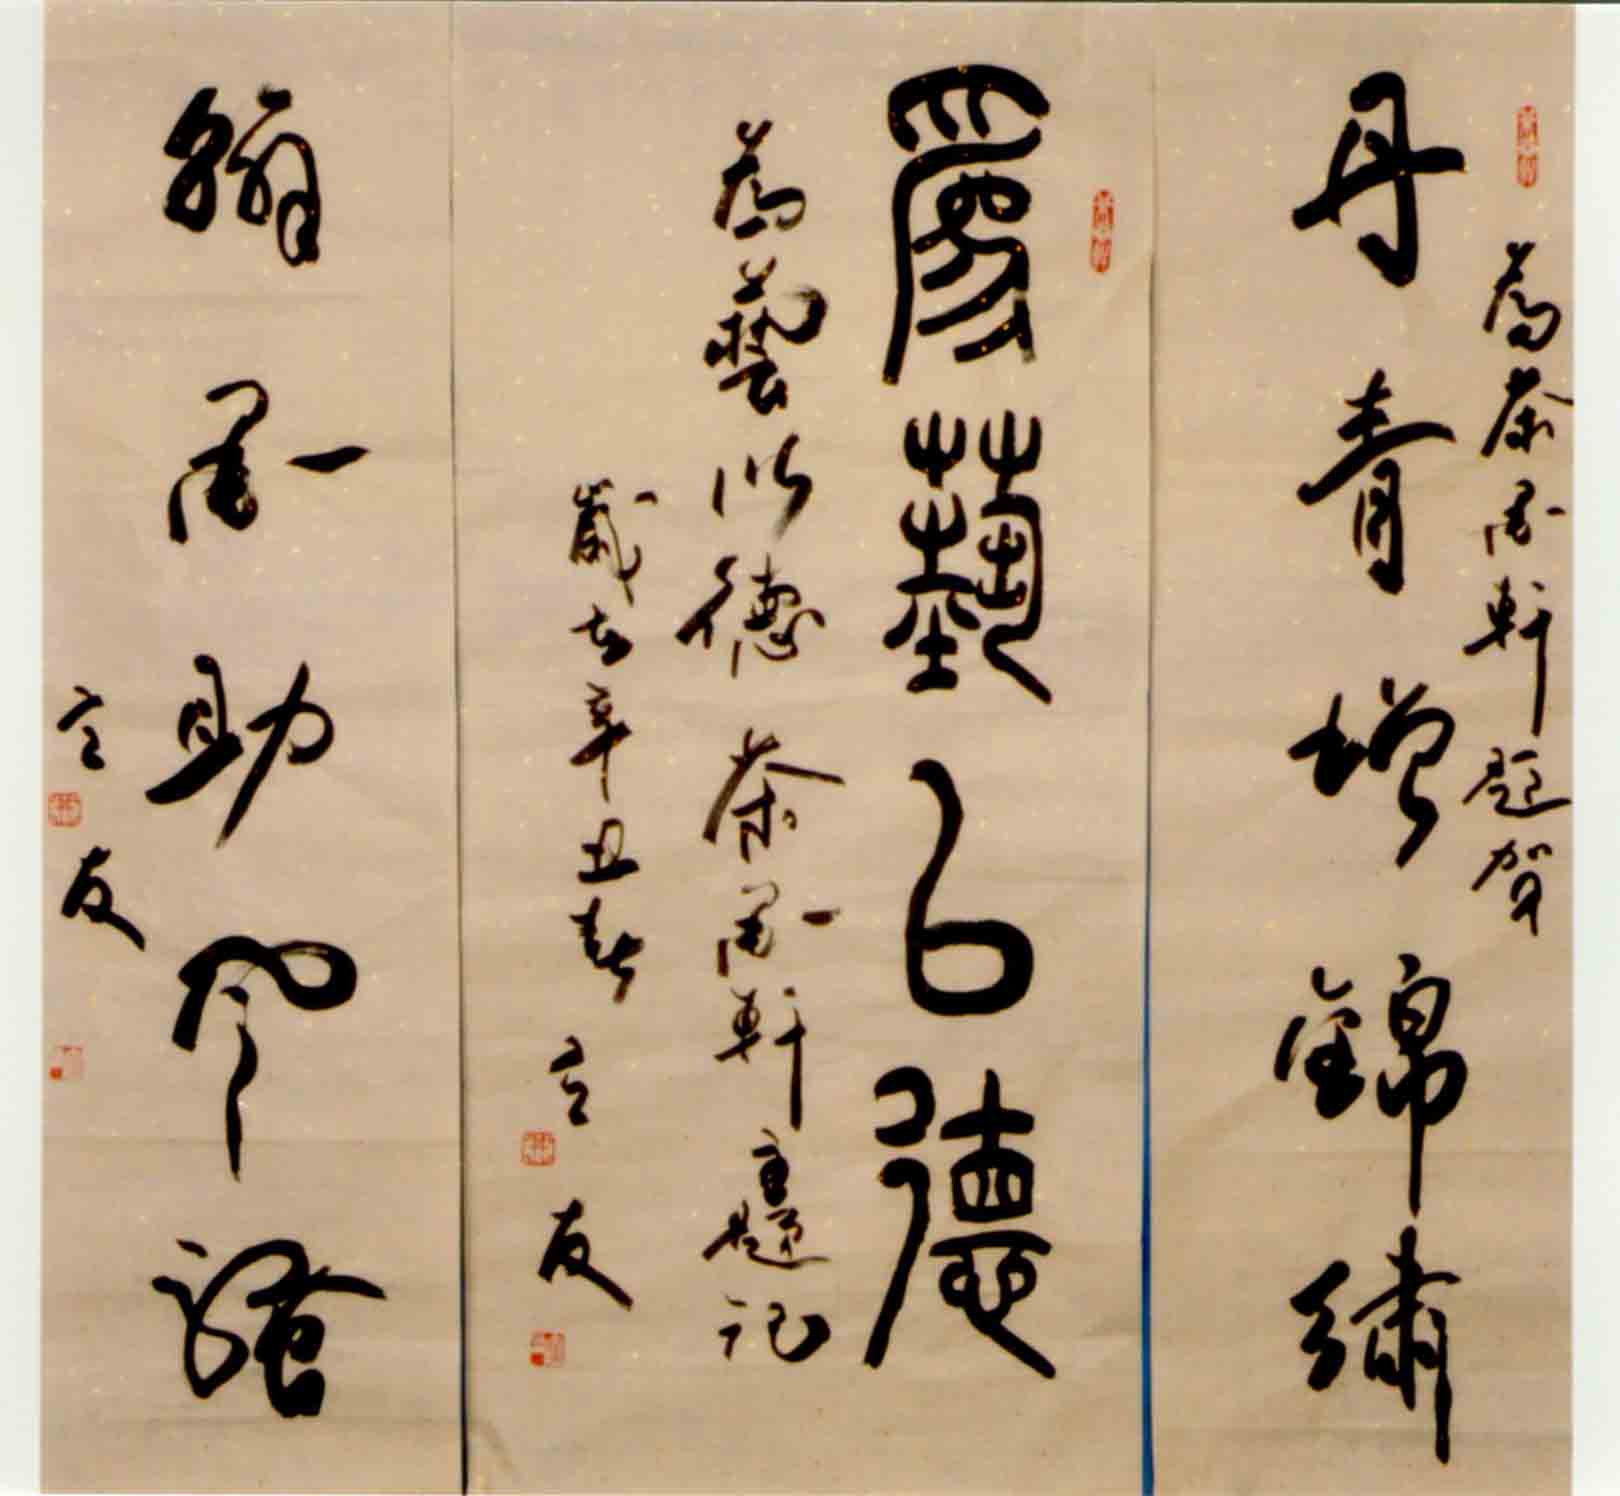 為茶墨軒題賀
丹青增錦繡
為藝以德
為藝以德 茶墨軒主題記
歲在辛丑春 立友
翰墨助風騷
立友